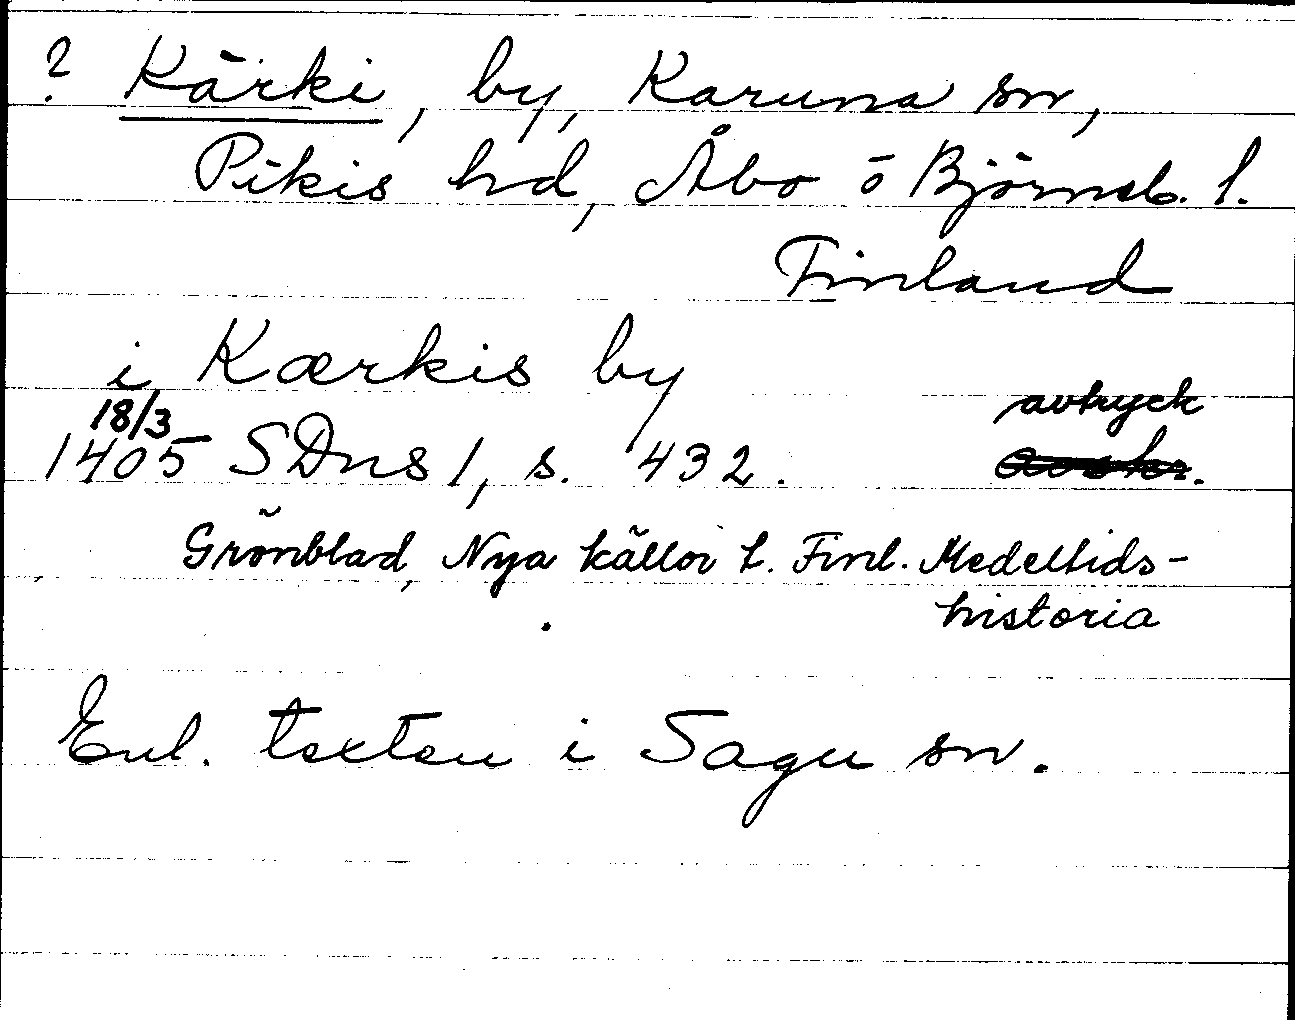 ? Kärki, by, Karuna sn,
Pikis hd, Åbo o Björneb. l.
Finland
i Kærkis by
18/3 avtryck
1405 SDns 1, s. 432.
Grönblad, Nya källor t. Finl. Medeltids-
historia
Enl. texten i Sagu sn.